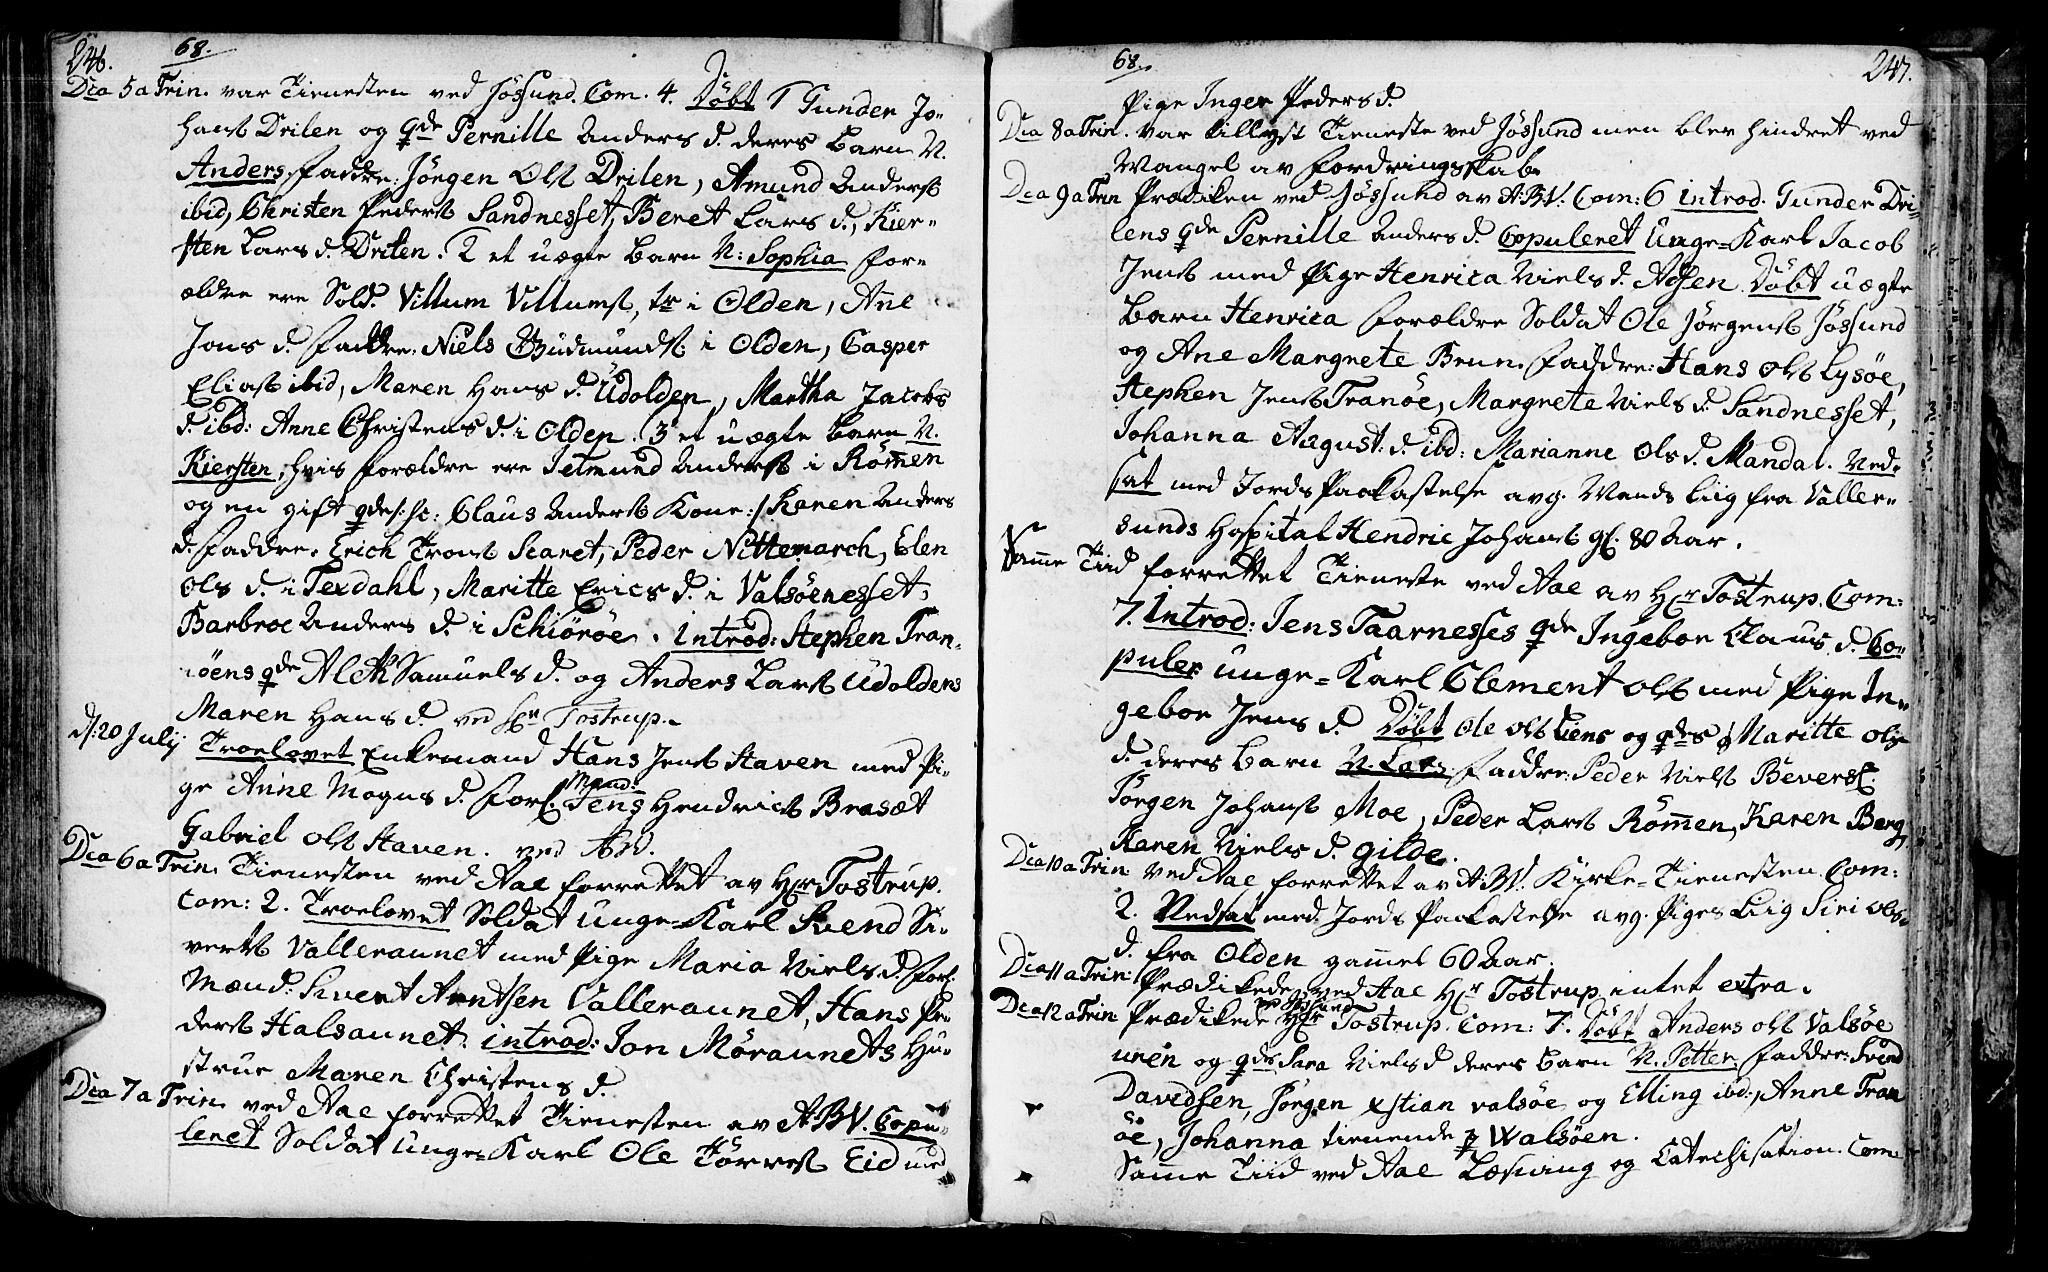 246. 68.
Dca 5 a Trin. var Tienesten ved Jössund. Com. 4. Döbt 1 Gunder Jo-
hans Drilen og qde Pernille Anders d. deres Barn N.
Anders. Faddre: Jörgen Ols Drilen, Amund Anders
ibid, Christen Peders Sandnesset, Beret Lars d., Kier-
sten Lars d. Drilen. 2 et uægte Barn N: Sophia For-
ældre ere Sold. Villum Villums, i Olden, Ane
Jons d. Faddre: Niels Gudmunds: i Olden, Casper
Elias ibid, Maren Hans d. Udolden, Martha Jacobs
d. ibd: Anne Christens d. i Olden. 3 et uægte Barn N.
Kiersten, hvis Forældre ere Jetmund Anders i Römen
og en gift qde /: sc: Claus Anders Kone :/ Karen Anders
d. Faddre. Erich Trons Scaret, Peder Nittemarch, Elen
Ols d. i Texdahl, Maritte Erics d. i Valsöenesset,
Barbroe Anders d. i Schiöröe. Introd: Stephen Tran-
öens qde Aleth Samuels d. og Anders Lars Udoldens
Maren Hans d. ved Hr Tostrup.
d: 20 July Troelovet Enkemand Hans Jens Staven med Pi-
ge Anne Mogns d. Forl. Mænd: Jens Hendrics Brasæt
Gabriel Ols Staven. ved ABV.
Dca 6 a Trin. Tienesten ved Aae forrettet av Hr Tostrup.
Com: 2. Troelovet Soldat Unge-Karl Svend Si-
verts Valleraunet med Pige Maria Niels d. Forl.
Mænd: Sivert Arntsen Valleraunet, Hans Pe-
ders Halsaunet. introd: Jon Möraunets Hu-
strue Maren Christens d.
Dca 7 a Trin. ved Aae forrettet Tienesten av ABV. Copu-
leret Soldat Unge-Karl Ole Törres Eid med
68. 247.
Pige Inger Peders d.
Dca 8 a Trin. var tillyst Tieneste ved Jössund men blev hindret ved
Mangel av Fordringsskab.
Dca 9 a Trin Prædiken ved Jössund av A:BV. Com: 6 introd. Gunder Dri-
lens qde Pernille Anders d. Copuleret Unge-Karl Jacob
Jens med Pige Henrica Niels d. Adsen. Döbt uægte
Barn Henrica Forældre Soldat Ole Jörgens Jössund
og Ane Margrete Brun. Faddre: Hans Ols Lysöe,
Stephen Jens Tranöe, Margrete Niels d. Sandnesset,
Johanna August: d. ibd: Marianne Ols d. Mandal. Ned-
sat med Jords Paakastelse avg. Mands Liig fra Valler-
sunds Hospital Hendric Johans gl. 80 Aar.
Samme Tiid forrettet Tieneste ved Aae av Hr Tostrup. Com:
7. Introd: Jens Taarnesses qde Ingebor Claus d. Co-
puler unge-Karl Clement Ols med Pige In-
gebor Jens d. Döbt Ole Ols Liens og qdes Maritte Ols
d. deres Barn N. Lars. Faddre: Peder Niels Bevers.
Jörgen Johans Moe, Peder Lars Römen, Karen Berg,
Karen Niels d. Gilde.
Dca 10 a Trin ved Aae forrettet av A:BV. Kirke-Tienesten. Com:
2. Nedsat med Jords Paakastelse avg. Piges Liig Siri Ols
d. fra Olden gamel 60 Aar.
Dca 11 a Trin: Prædikede ved Aae Hr Tostrup intet extra.
Dca 12 a Trin Prædikede ved Jössund Hr Tostrup. Com: 7. Döbt Anders Ols Valsöe
uren og qde Sara Niels d deres Barn N. Petter. Fadder: Svend
Davidsen, Jörgen Xstian Valsöe og Elling ibd:, Anne Tran
öe, Johanna tienende p Walsöen.
Same Tiid ved Aae Læsning og Catechisation. Com: